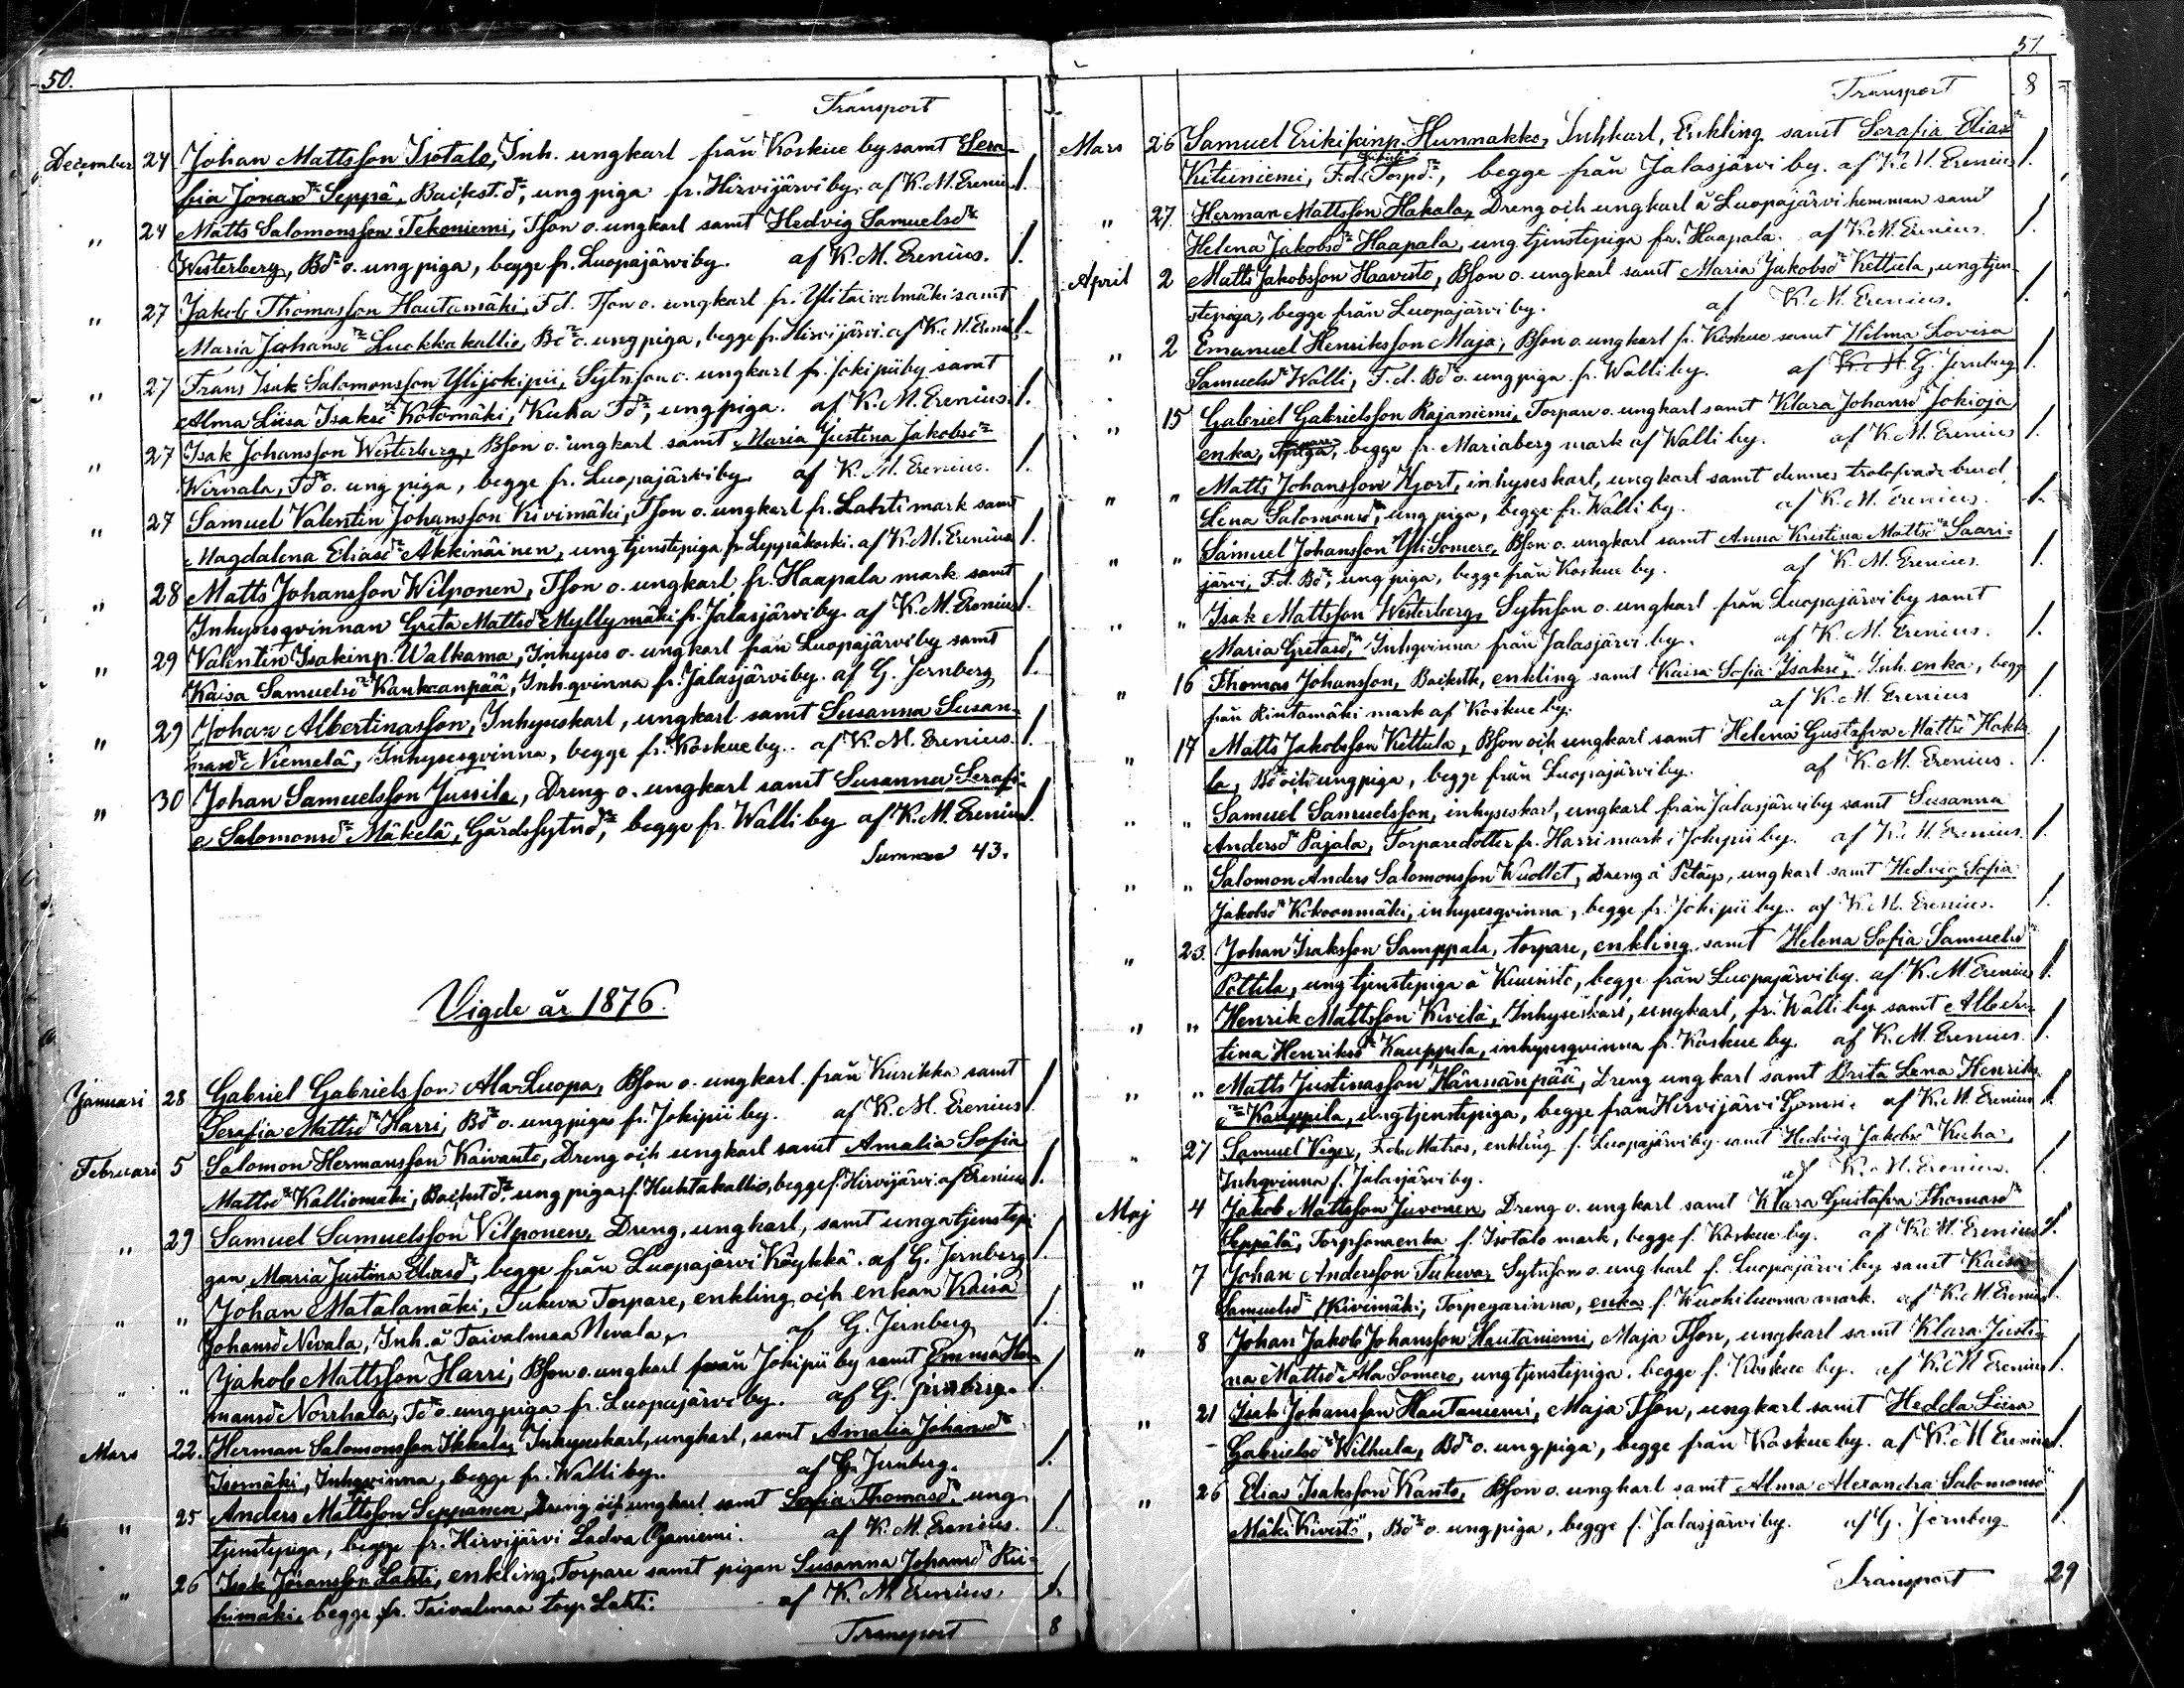 50.
Transport
December 24 Johan Mattsson Isotalo, Inh. ungkarl från Koskue by samt Sera-
fia Jonasdr Seppä, Backst. dr, ung piga fr. Hirvijärvi by. af K. M. Erenius 1.
„ 24 Matts Salomonsson Tekoniemi, Tson o. ungkarl samt Hedvig Samuelsdr
Westerberg, Bdr o. ung piga, begge fr. Luopajärvi by. af K. M. Erenius. 1.
„ 27 Jakob Thomasson Hautamäki, F.d. Tson o. ungkarl fr. Ylitaivalmäki samt
Maria Johansdr Luokkakallio, Bdr o. ung piga, begge fr. Hirvijärvi. af K. M. Erenius 1.
„ 27 Frans Isak Salomonsson Ylijokipii, Sytnson o. ungkarl fr. Jokipii by samt
Alma Liisa Isaksdr Kotomäki, Kuha Tdr, ung piga. af K. M. Erenius. 1.
„ 27 Isak Johansson Westerberg, Bson o. ungkarl samt Maria Justina Jakobsdr
Wirnala, Tdr o. ung piga, begge fr. Luopajärvi by. af K. M. Erenius. 1.
„ 27 Samuel Valentin Johansson Kivimäki, Tson o. ungkarl fr. Lahti mark samt
Magdalena Eliasdr Akkinäinen, ung tjenstepiga fr. Leppäkoski. af K. M. Erenius 1.
„ 28 Matts Johansson Wilponen, Tson o. ungkarl fr. Haapala mark samt
Inhysesqvinnan Greta Mattsdr Myllymäki fr. Jalasjärvi by. af K. M. Erenius 1.
„ 29 Valentin Isakinp. Walkama, Inhyses o. ungkarl från Luopajärvi by samt
Kaisa Samuelsdr Kankaanpää, Inh.qvinna fr. Jalasjärvi by. af G. Jernberg 1.
„ 29 Johan Albertinasson, Inhyseskarl, ungkarl samt Susanna Susan-
nasdr Niemelä, Inhysesqvinna, begge fr. Koskue by. af K. M. Erenius. 1.
„ 30 Johan Samuelsson Jussila, Dreng o. ungkarl samt Susanna Serafi-
a Salomonsdr Mäkelä, Gårdssytndr, begge fr. Walli by af K. M. Erenius 1.
Summa 43.
Vigde år 1876.
Januari 28 Gabriel Gabrielsson Ala-Luopa, Bson o. ungkarl från Kurikka samt
Serafia Mattsdr Harri, Bdr o. ung piga fr. Jokipii by. af K. M. Erenius 1.
Februari 5 Salomon Hermansson Kaivanto, Dreng och ungkarl samt Amalia Sofia
Mattsdr Kalliomäki, Backst dr. ung piga f. Huhtakallio, begge f. Hirvijärvi. af Erenius 1.
„ 29 Samuel Samuelsson Vilponen, Dreng, ungkarl, samt unga tjenstepi-
gan Maria Justina Eliasdr, begge från Luopajärvi Köykkä. af G. Jernberg 1.
„ „ Johan Matalamäki, Tukeva Torpare, enkling och enkan Kaisa
Johansdr Nevala, Inh. å Taivalmaa Nevala, af G. Jernberg 1.
„ „ Jakob Mattsson Harri, Bson o. ungkarl från Jokipii by samt Emma Her-
mansdr Norrhala, Tdr o. ung piga fr. Luopajärvi by. af G. Jernberg. 1.
Mars 22. Herman Salomonsson Ikkala, Inhyseskarl, ungkarl, samt Amalia Johansdr
Isomäki, Inhqvinna, begge fr. Walli by. af G. Jernberg. 1.
„ 25 Anders Mattsson Seppänen, Dreng och ungkarl samt Sofia Thomasdr. ung
tjenstepiga, begge fr. Hirvijärvi Ladva Ojaniemi. af K. M. Erenius. 1.
„ 26 Isak Göransson Lahti, enkling, Torpare samt pigan Susanna Johansdr Rii-
himäki, begge fr. Taivalmaa torp Lahti. af K. M. Erenius. 1.
Transport 8
51.
Transport 8
Mars 26 Samuel Erikikinp. Hunnakko, Inhkarl, Enkling samt Serafia Eliasdr
Kituniemi, F.d. Torpdr, begge från Jalasjärvi by. af K. M. Erenius 1.
„ 27. Herman Mattsson Hakala, Dreng och ungkarl å Luopajärvi hemman samt
Helena Jakobsdr Haapala, ung tjenstepiga fr. Haapala. af K. M. Erenius. 1.
April 2 Matts Jakobsson Haavisto, Bson o. ungkarl samt Maria Jakobsdr Kettula, ung tjen-
stepiga, begge från Luopajärvi by. af K. M. Erenius. 1.
„ 2 Emanuel Henriksson Maja, Bson o. ungkarl fr. Koskue samt Wilma Lovisa
Samuelsdr Walli, F.d. Bdr o. ung piga fr. Walli by. af K. M. G. Jernberg 1.
„ 15 Gabriel Gabrielsson Rajaniemi, Torpare o. ungkarl samt Klara Johansdr Jokioja
enka, begge fr. Mariaberg mark af Walli by. af K. M. Erenius 1.
„ „ Matts Johansson Hjort, inhyseskarl, ungkarl samt dennes trolofvade brud
Lena Salomonsdr, ung piga, begge fr. Walli by. af K. M. Erenius. 1.
„ „ Samuel Johansson Yli Somero, Bson o. ungkarl samt Anna Kristina Mattsdr Saari-
järvi, F.d. Bdr, ung piga, begge från Koskue by. af K. M. Erenius. 1.
„ „ Isak Mattsson Westerberg, Sytnson o. ungkarl från Luopajärvi by samt
Maria Gretasdr, Inhqvinna från Jalasjärvi by. af K. M. Erenius. 1.
„ 16 Thomas Johansson, Backstk, enkling samt Kaisa Sofia Isaksdr, Inh. enka, begge
från Rintamäki mark af Koskue by. af K. M. Erenius 1.
„ 17 Matts Jakobsson Kettula, Bson och ungkarl samt Helena Gustafva Mattsdr Hakka-
la, Bdr och ung piga, begge från Luopajärvi by. af K. M. Erenius. 1.
„ „ Samuel Samuelsson, inhyseskarl, ungkarl från Jalasjärvi by samt Susanna
Andersdr Pajala, Torparedotter fr. Harri mark i Jokipii by. af K. M. Erenius. 1.
„ „ Salomon Anders Salomonsson Wuollet, Dreng å Petäys, ungkarl samt Hedvig Sofia
Jakobsdr Kokoonmäki, inhysesqvinna, begge fr. Jokipii by. af K. M. Erenius. 1.
„ 23. Johan Isaksson Samppala, torpare, enkling samt Helena Sofia Samuelsdr
Pettila, ung tjenstepiga å Kuuisto, begge från Luopajärvi by. af K. M. Erenius 1.
„ „ Henrik Mattsson Kivilä, Inhyseskarl, ungkarl, fr. Walli by samt Alber-
tina Henriksdr Kauppila, inhysesqvinna fr. Koskue by. af K. M. Erenius. 1.
„ „ Matts Justinasson Hännänpää, Dreng ungkarl samt Brita Lena Henriks-
dr Kauppila, ung tjenstepiga, begge från Hirvijärvi. af K. M. Erenius 1.
„ 27 Samuel Viger, F.d. Matros, enkling f. Luopajärvi by samt Hedvig Jakobsdr Kuha,
Inhqvinna f. Jalasjärvi by. af K. M. Erenius. 1.
Maj 4 Jakob Mattsson Juvonen, Dreng o. ungkarl samt Klara Gustafva Thomasdr
Seppälä, Torpsonsenka f. Isotalo mark, begge f. Koskue by. af K. M. Erenius 1.
„ 7 Johan Andersson Tukeva, Sytnson o. ungkarl f. Luopajärvi by samt Kaisa
Samuelsdr Kivimäki, Torpegarinna, enka f. Wuohiluoma mark. af K. M. Erenius 1.
„ 8 Johan Jakob Johansson Hautaniemi, Maja Tson, ungkarl samt Klara Justi-
na Mattsdr Ala Somero, ung tjenstepiga, begge f. Koskue by. af K. M. Erenius 1.
„ 21 Isak Johansson Hautaniemi, Maja Tson, ungkarl samt Hedda Liisa
Gabrielsdr Wilhula, Bdr o. ung piga, begge från Koskue by. af K. M. Erenius 1.
„ 26 Elias Isaksson Kanto, Bson o. ungkarl samt Alma Alexandra Salomonsdr
Mäki Kivistö, Bdr o. ung piga, begge f. Jalasjärvi by. af G. Jernberg 1.
Transport 29